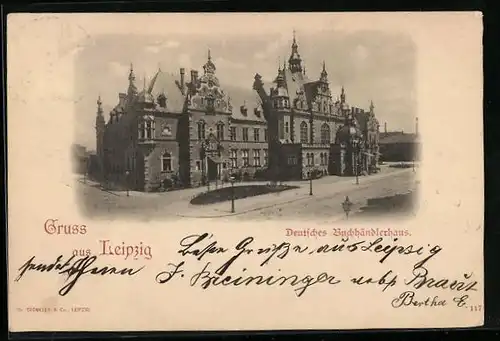 Gruss
aus Leipzig
Deutsches Buchhändlerhaus.
Beste Grüße aus Leipzig
sendet Ihnen J. Breininger nebst Braut
Bertha E.
& Co., LEIPZIG.
117